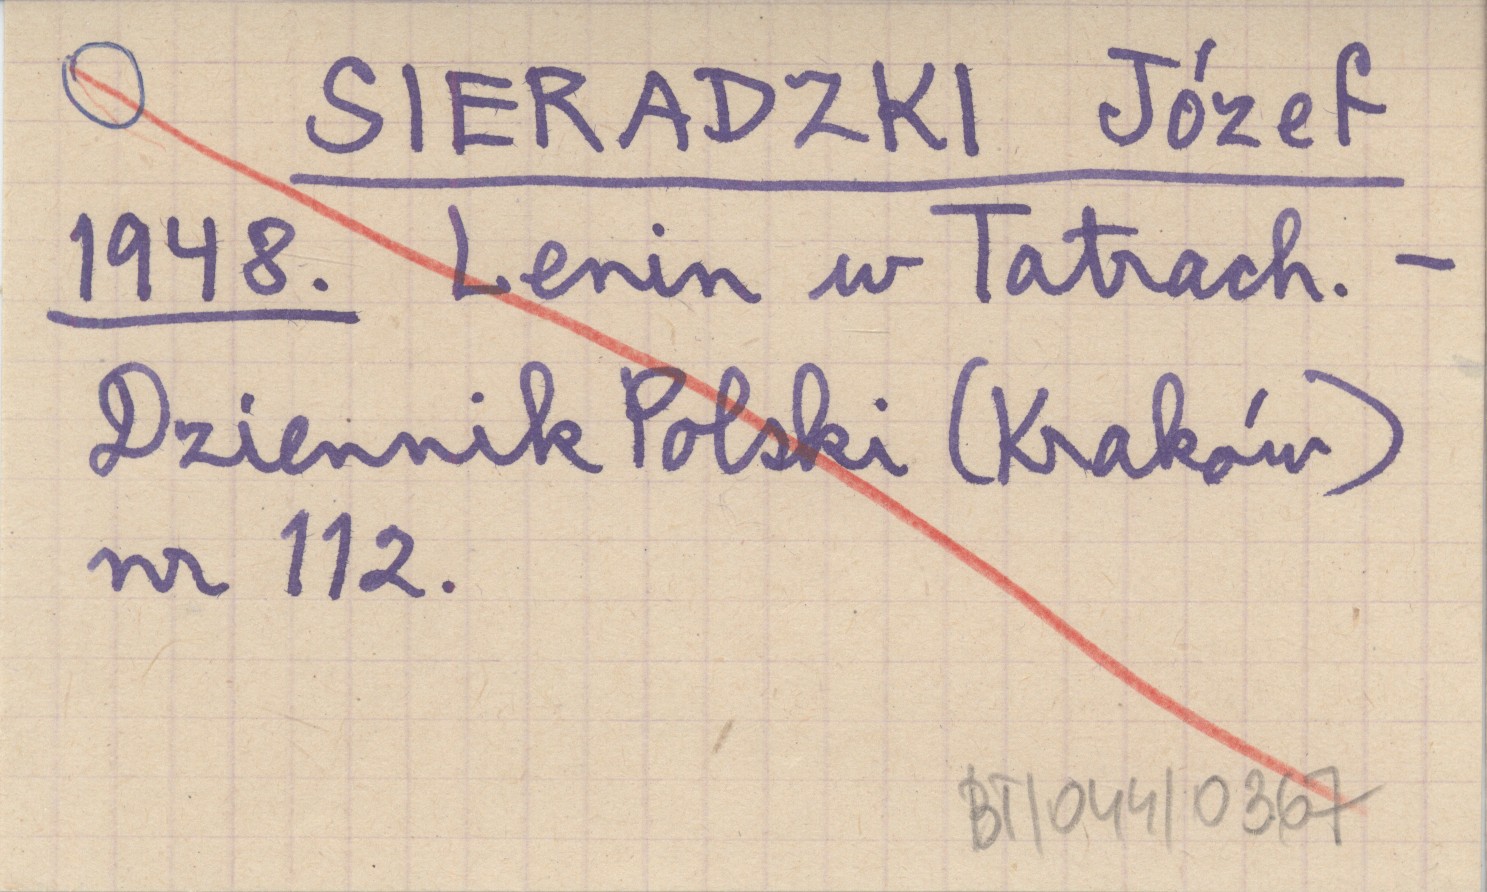 SIERADZKI Józef
1948. Lenin w Tatrach. -
Dziennik Polski (Kraków)
nr 112.
BT/044/0367